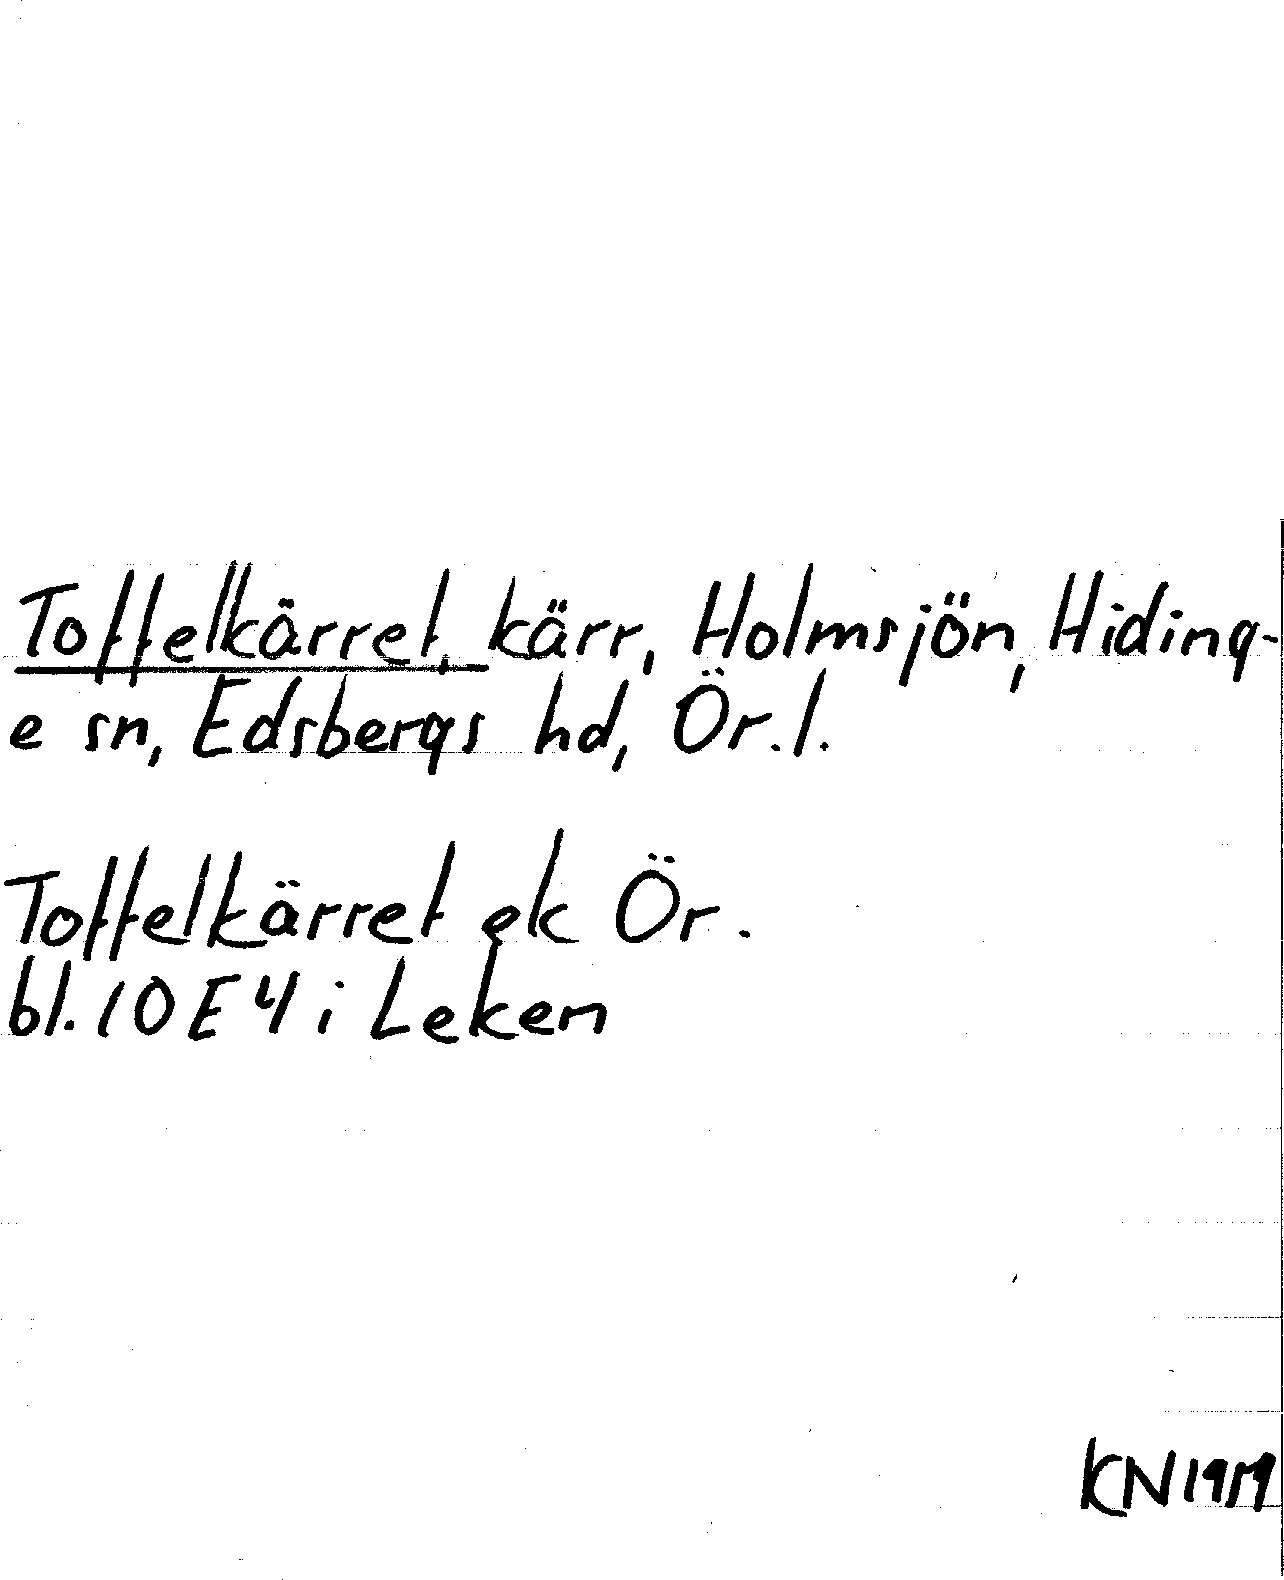 Toffelkärret, kärr, Holmsjön, Hiding-
e sn, Edsbergs hd, Ör.l.
Toffelkärret ek Ör.
bl. 10 E 4 i Leken